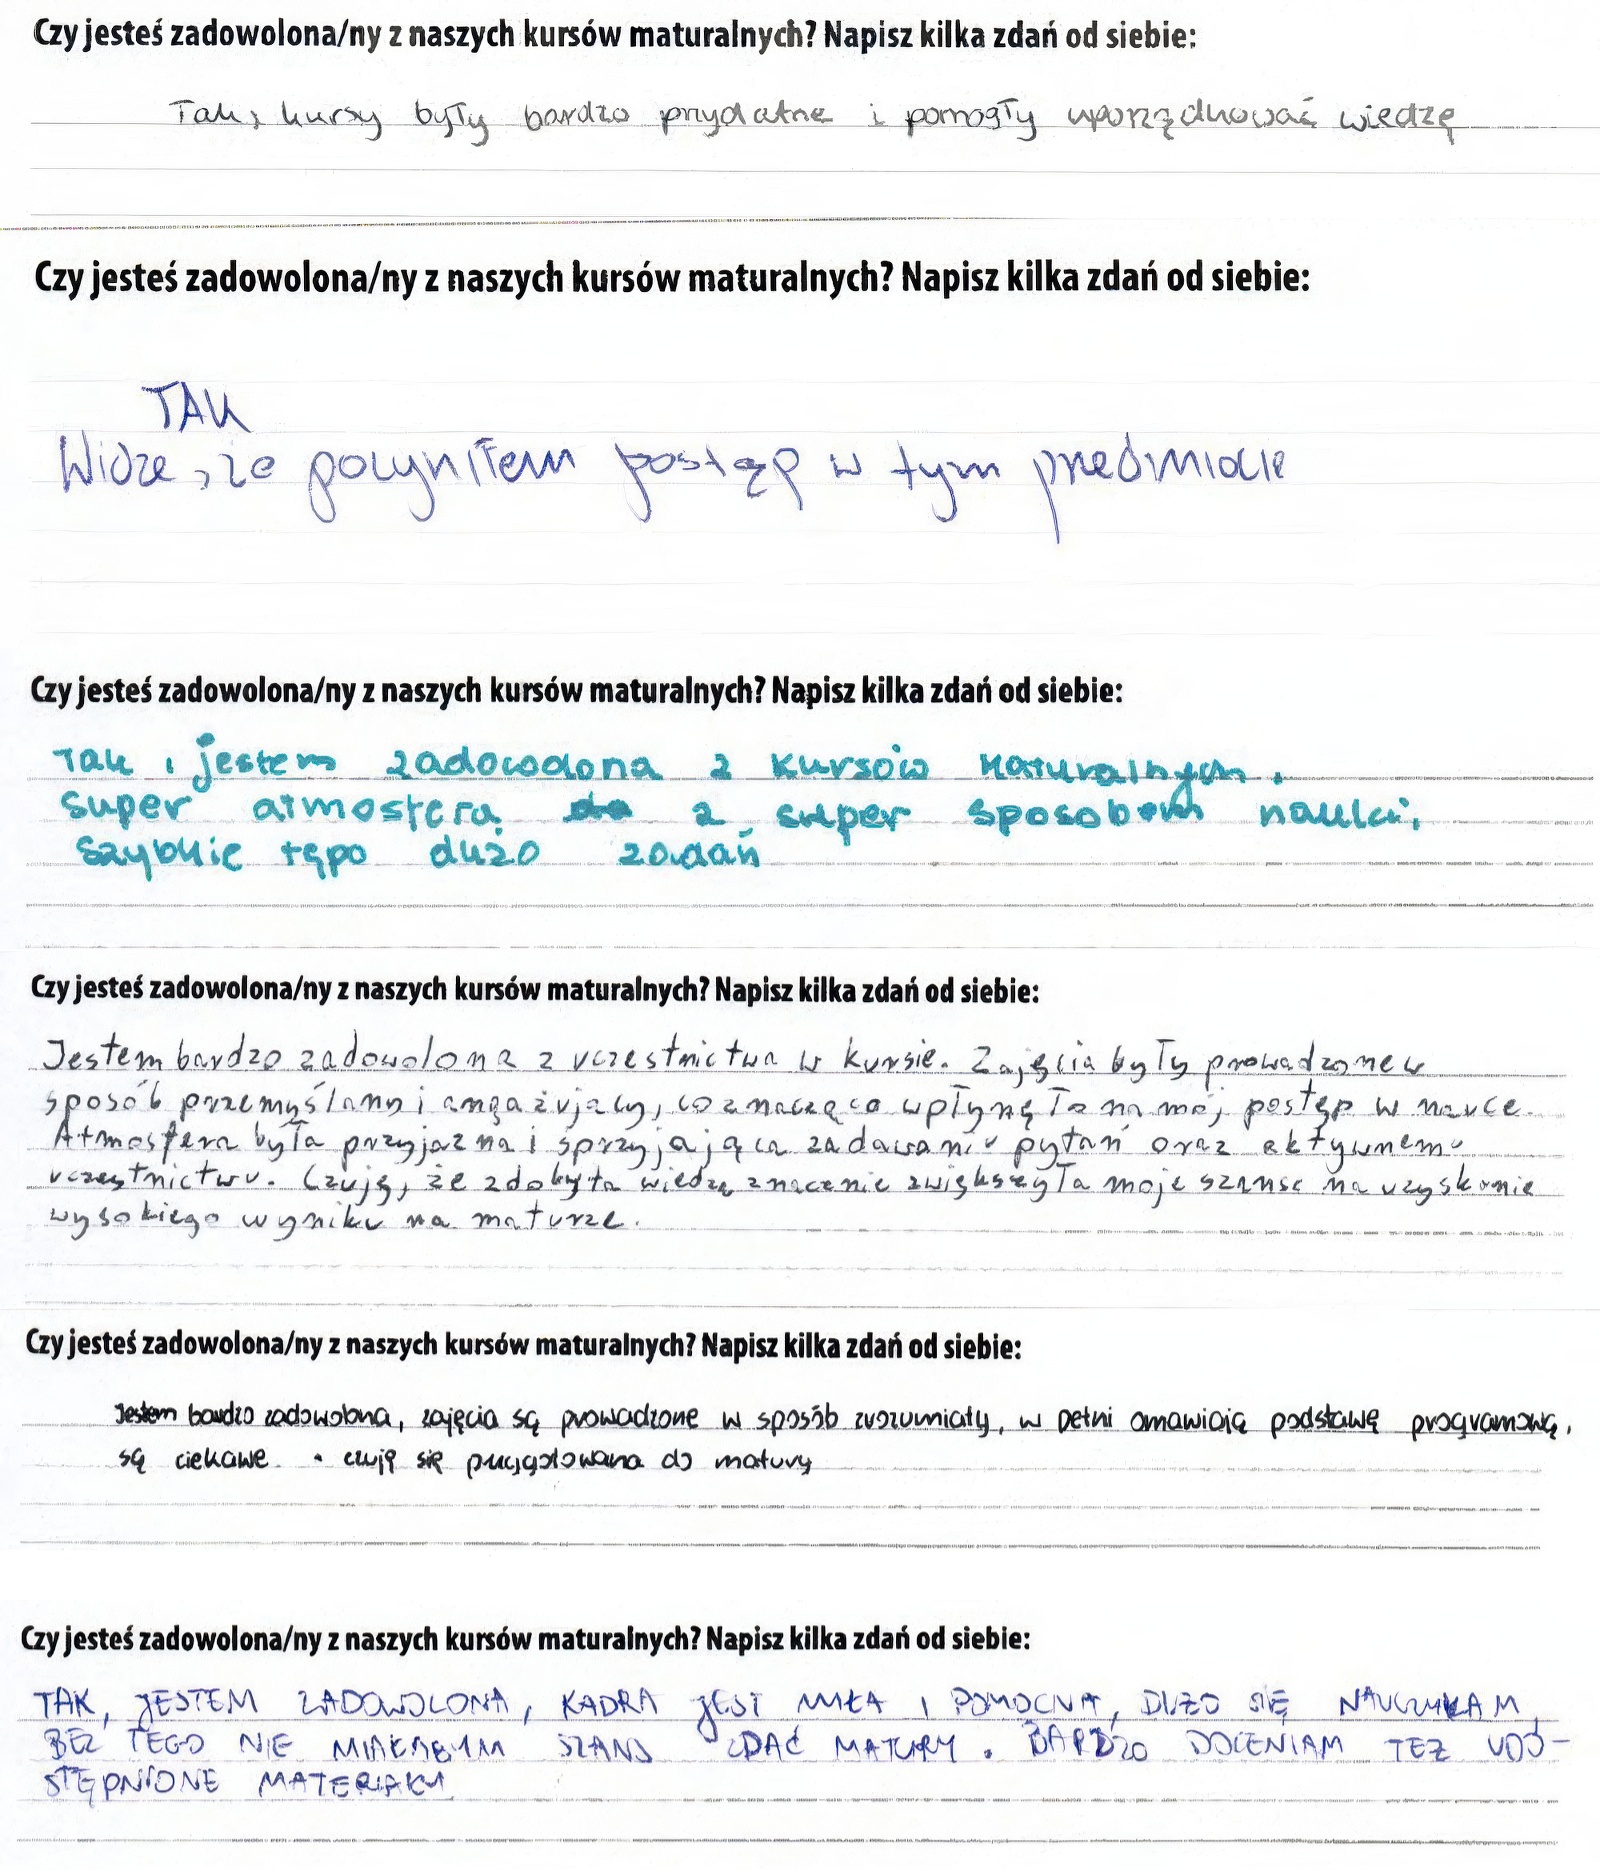 Czy jesteś zadowolona/ny z naszych kursów maturalnych? Napisz kilka zdań od siebie:
Tak, kursy były bardzo przydatne i pomogły uporządkować wiedzę
Czy jesteś zadowolona/ny z naszych kursów maturalnych? Napisz kilka zdań od siebie:
TAK
Widze, że poczyniłem postęp w tym przedmiocie
Czy jesteś zadowolona/ny z naszych kursów maturalnych? Napisz kilka zdań od siebie:
Tak, jestem zadowolona z kursów maturalnych.
super atmosfera z super sposobem nauki,
szybkie tępo dużo zadań
Czy jesteś zadowolona/ny z naszych kursów maturalnych? Napisz kilka zdań od siebie:
Jestem bardzo zadowolona z uczestnictwa w kursie. Zajęcia były prowadzone w
sposób przemyślany i angażujący, co znacząco wpłynęło na mój postęp w nauce.
Atmosfera była przyjazna i sprzyjająca zadawaniu pytań oraz aktywnemu
uczestnictwu. Czuję, że zdobyta wiedza znacznie zwiększyła moje szanse na uzyskanie
wysokiego wyniku na maturze.
Czy jesteś zadowolona/ny z naszych kursów maturalnych? Napisz kilka zdań od siebie:
Jestem bardzo zadowolona, zajęcia są prowadzone w sposób zrozumiały, w pełni omawiają podstawę programową,
są ciekawe. czuję się przygotowana do matury
Czy jesteś zadowolona/ny z naszych kursów maturalnych? Napisz kilka zdań od siebie:
TAK, JESTEM ZADOWOLONA, KADRA JEST MIŁA I POMOCNA, DUŻO SIĘ NAUCZYŁAM,
BEZ TEGO NIE MIAŁABYM SZANS ZDAĆ MATURY. BARDZO DOCENIAM TEŻ UDO-
STĘPNIONE MATERIAŁY